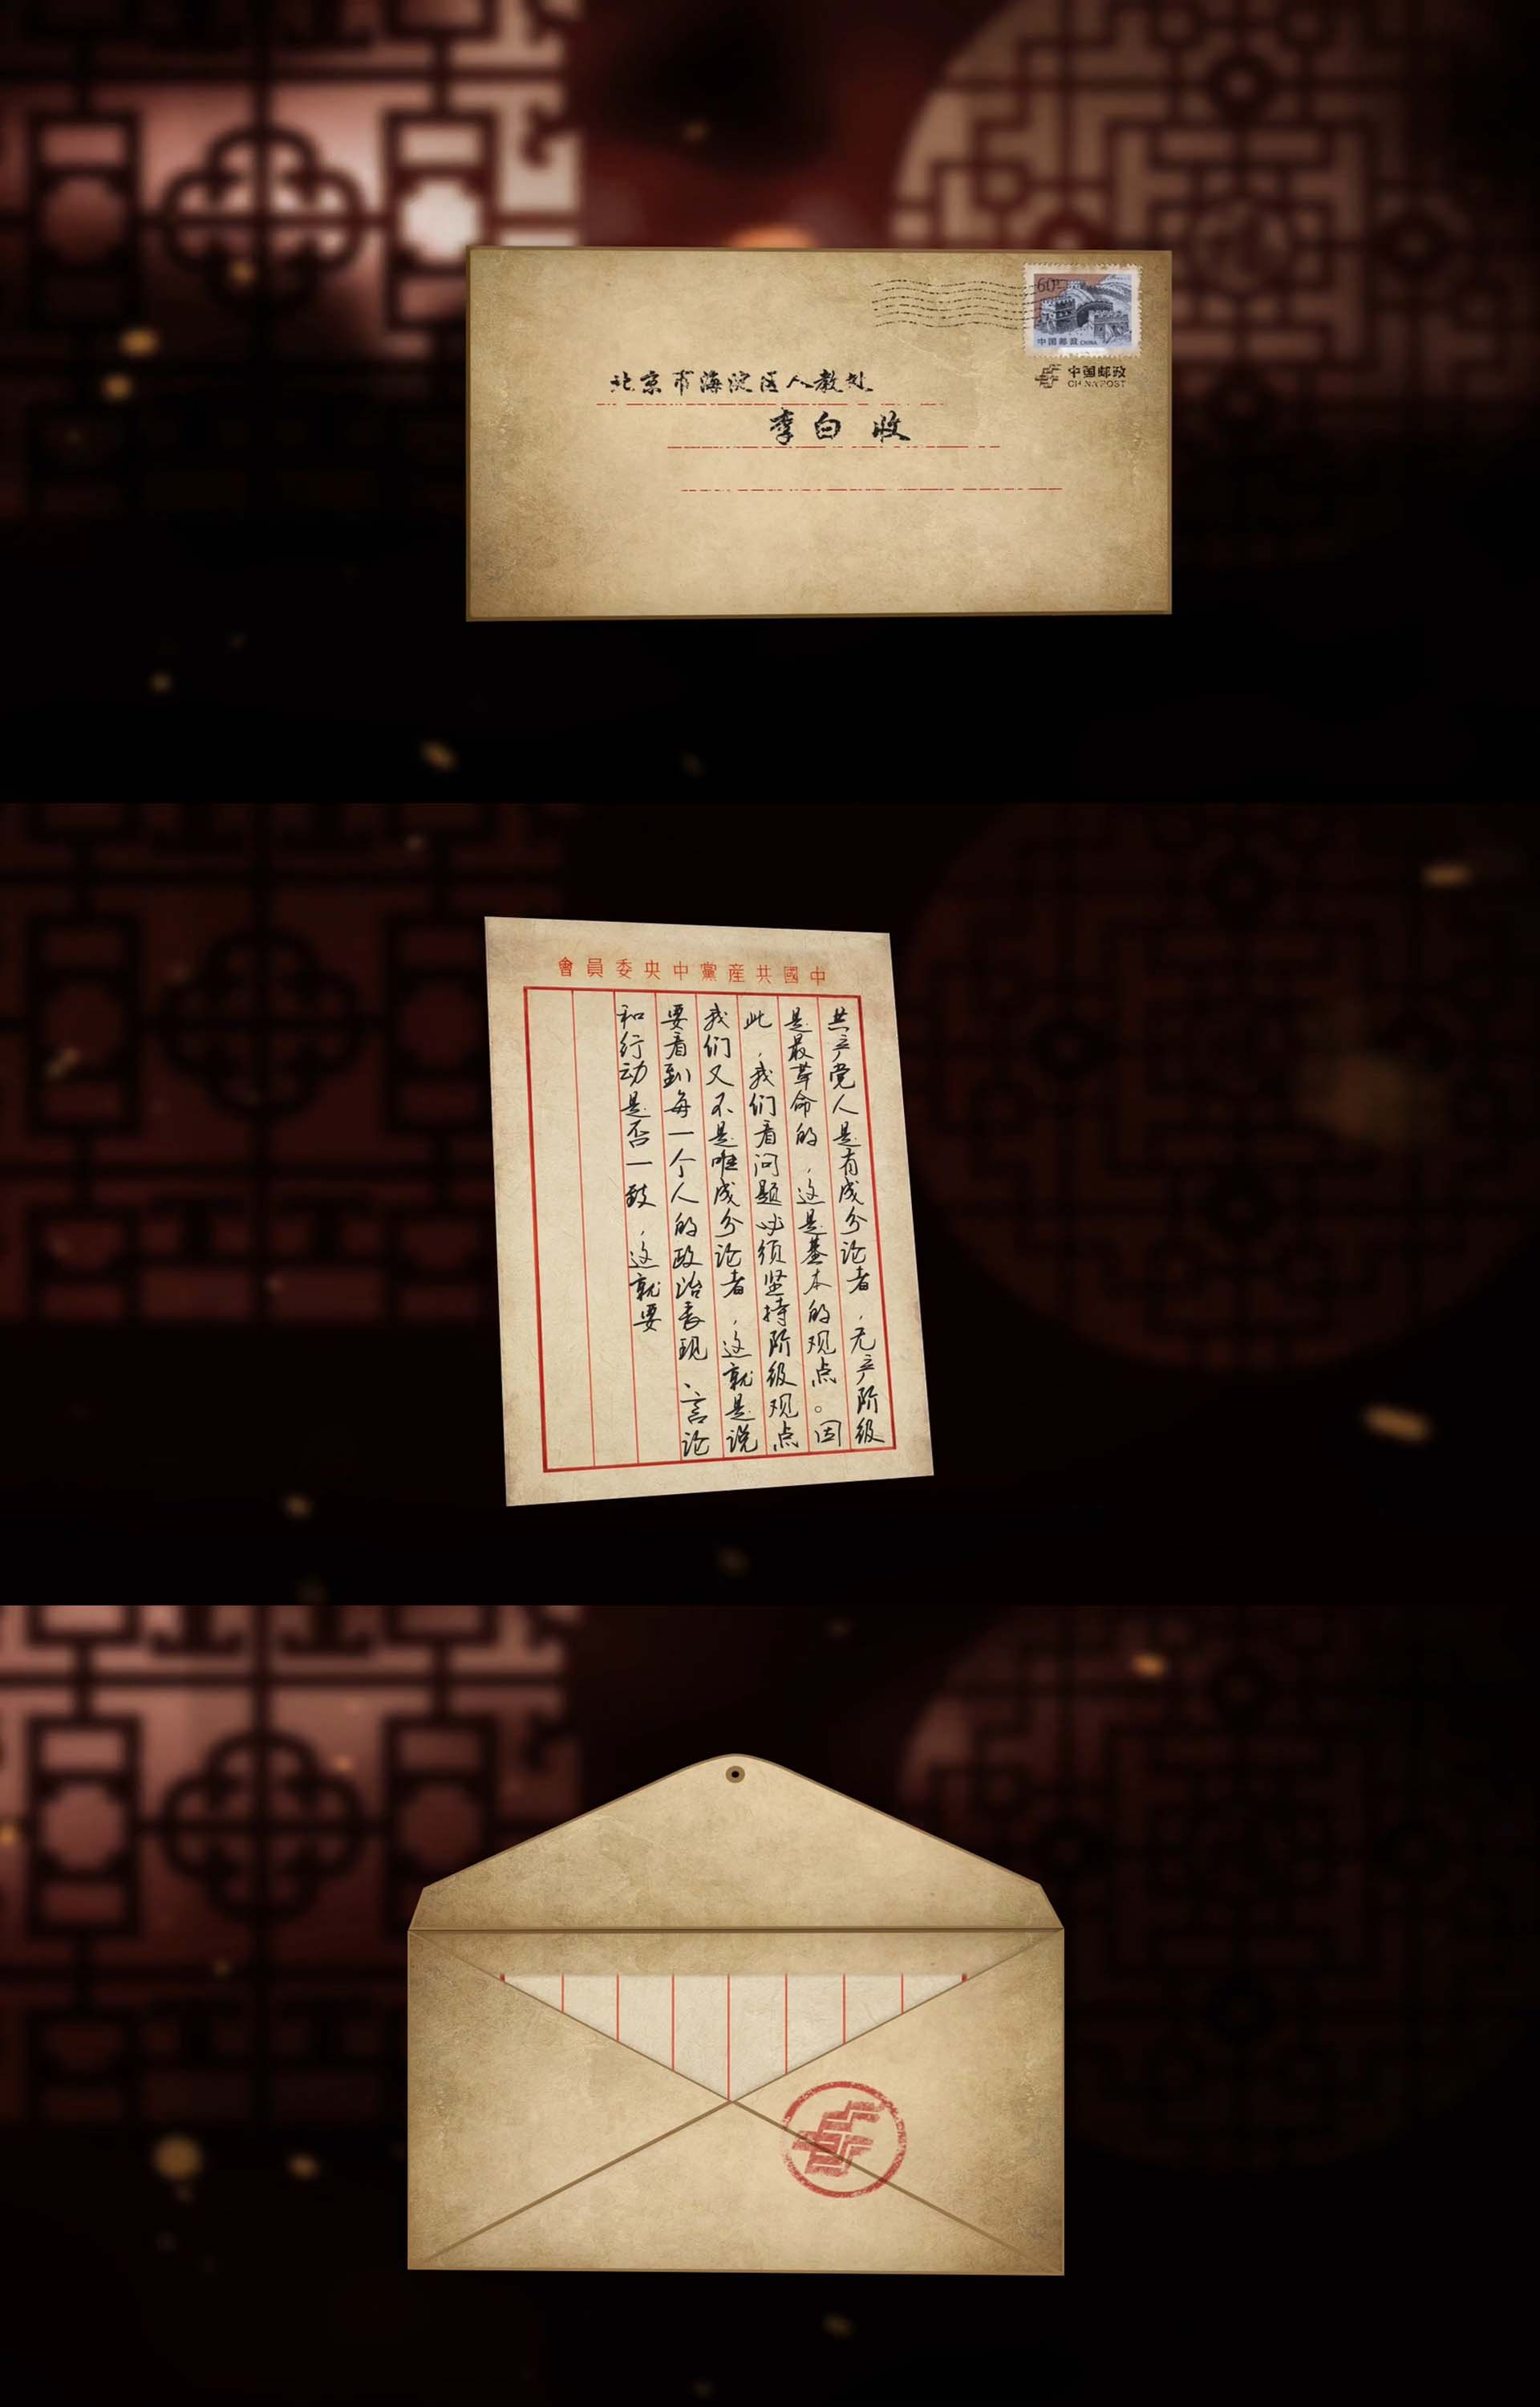 60分
中国邮政 CHINA
中国邮政
CHINA POST
北京市海淀区人教处
李白 收
會員委央中黨産共國中
共产党人是有成分论者，无产阶级
是最革命的，这是基本的观点。因
此，我们看问题必须坚持阶级观点
我们又不是唯成分论者，这就是说
要看到每一个人的政治表现、言论
和行动是否一致，这就要